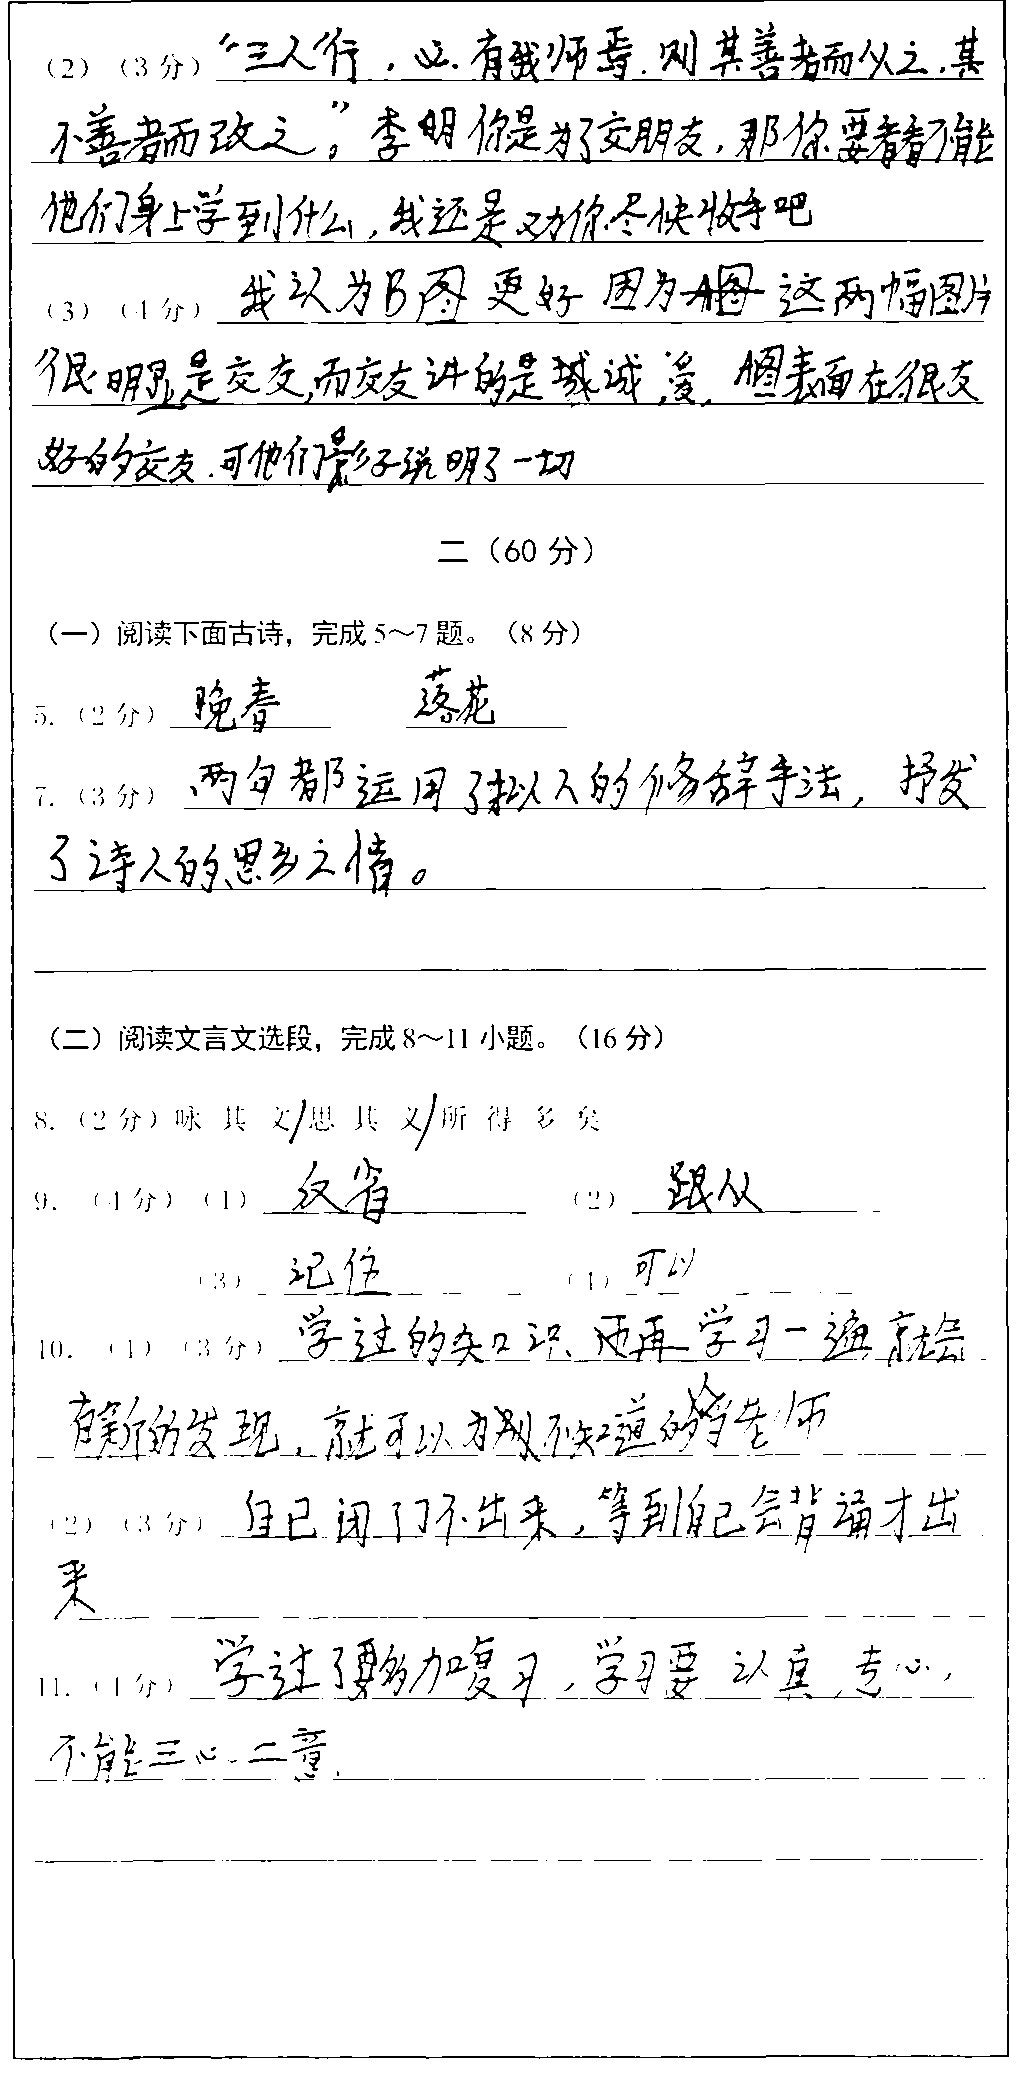 （2）（3分）“三人行，必有我师焉.则其善者而从之，其
不善者而改之”。李明你是为了交朋友，那你要看看不能
他们身上学到什么，我还是劝你尽快收手吧
（3）（4分）我认为B图更好 因为 这两幅图片
很明显是交友，而交友讲的是诚，爱，A图表面在很友
好的交友.可他们影子说明了一切
二（60分）
（一）阅读下面古诗，完成5～7题。（8分）
5.（2分）晚春 落花
7.（3分）两句都运用了拟人的修辞手法，抒发
了诗人的思乡之情。
（二）阅读文言文选段，完成8～11小题。（16分）
8.（2分）咏其文/思其义/所得多矣
9.（4分）（1）反省 （2）跟从
（3）记住 （4）可以
10.（1）（3分）学过的知识 再学习一遍 就会
有新的发现，就可以为不知道的当老师
（2）（3分）自己闭门不出来，等到自己会背诵才出
来
11.（4分）学过了要多加复习，学习要认真，专心，
不能三心二意.